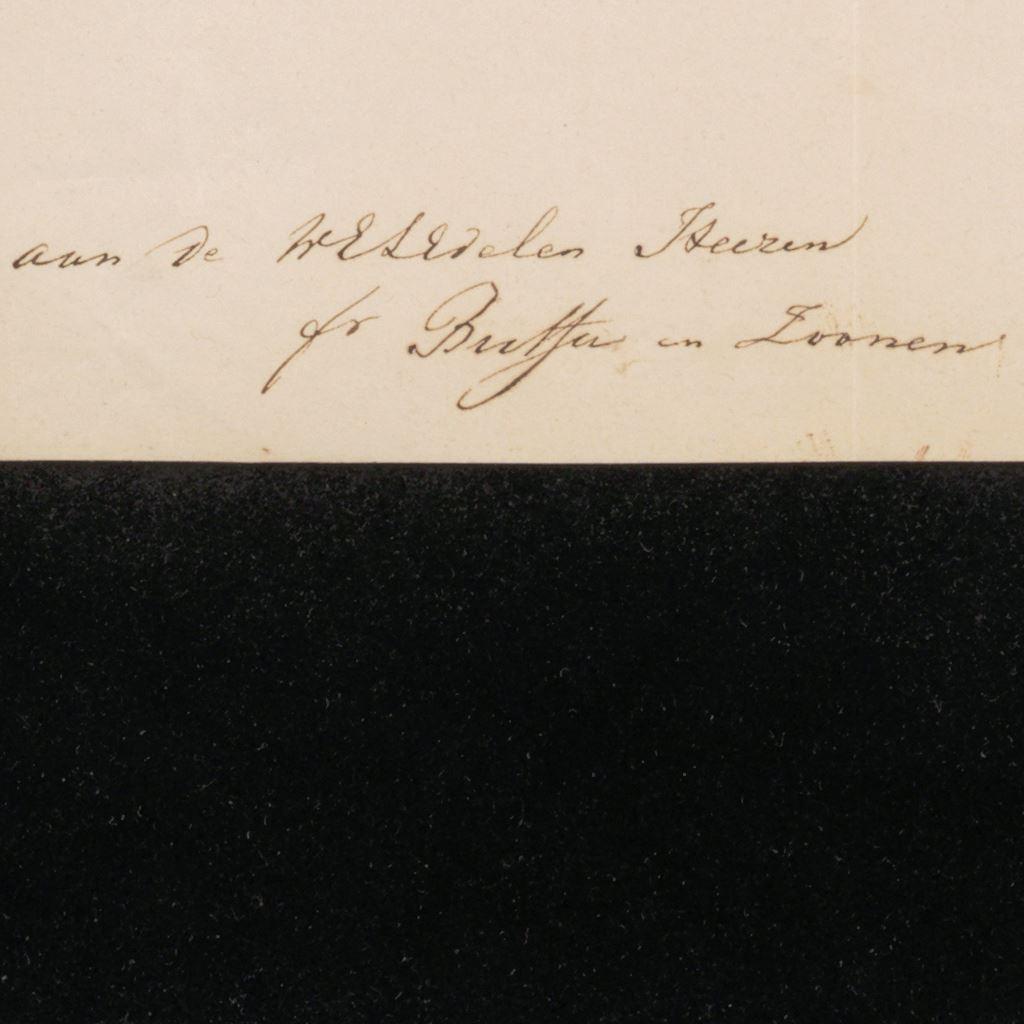 aan de WElEdelen Heeren
fr Buffa en Zoonen